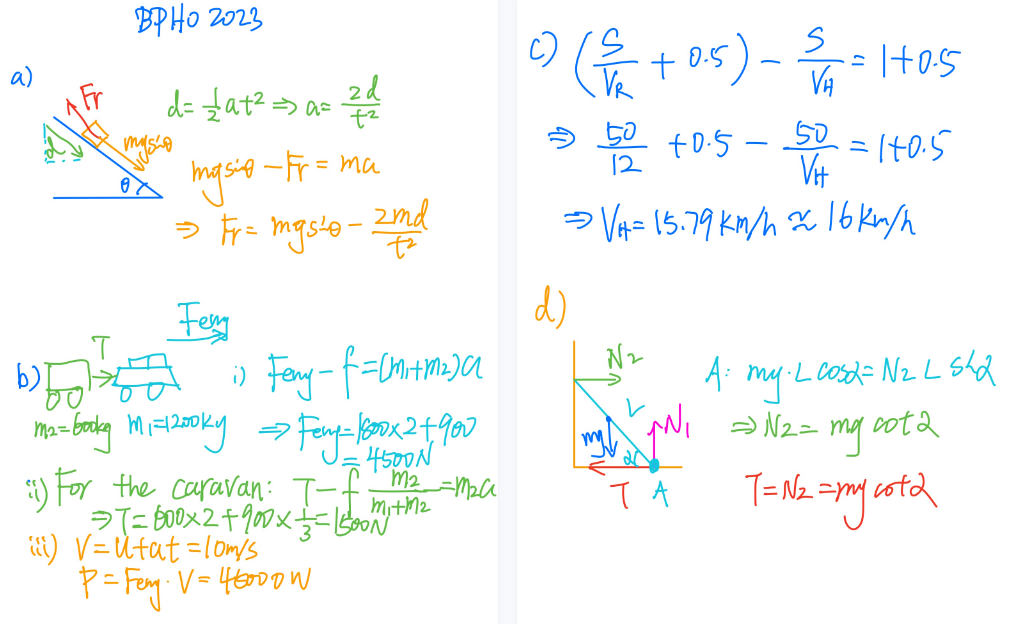 BPHO 2023
a)
Fr
d
mgsinθ
θ
d = 1/2 at² ⇒ a = 2d/t²
mgsinθ - Fr = ma
⇒ Fr = mgsinθ - 2md/t²
b)
T
Feng
m₂=600kg m₁=1200kg
i) Feng - f = (m₁+m₂)a
⇒ Feng = 1800×2+900
= 4500N
ii) For the caravan: T - f m₂/(m₁+m₂) = m₂a
⇒ T = 600×2+900×1/3 = 1500N
iii) V = u+at = 10m/s
P = Feng · V = 45000W
c) (S/VR + 0.5) - S/VH = 1+0.5
⇒ 50/12 + 0.5 - 50/VH = 1+0.5
⇒ VH = 15.79 km/h ≈ 16 km/h
d)
N₂
mg
N₁
α
T A
A: mg·L cosα = N₂ L sinα
⇒ N₂ = mg cotα
T = N₂ = mg cotα